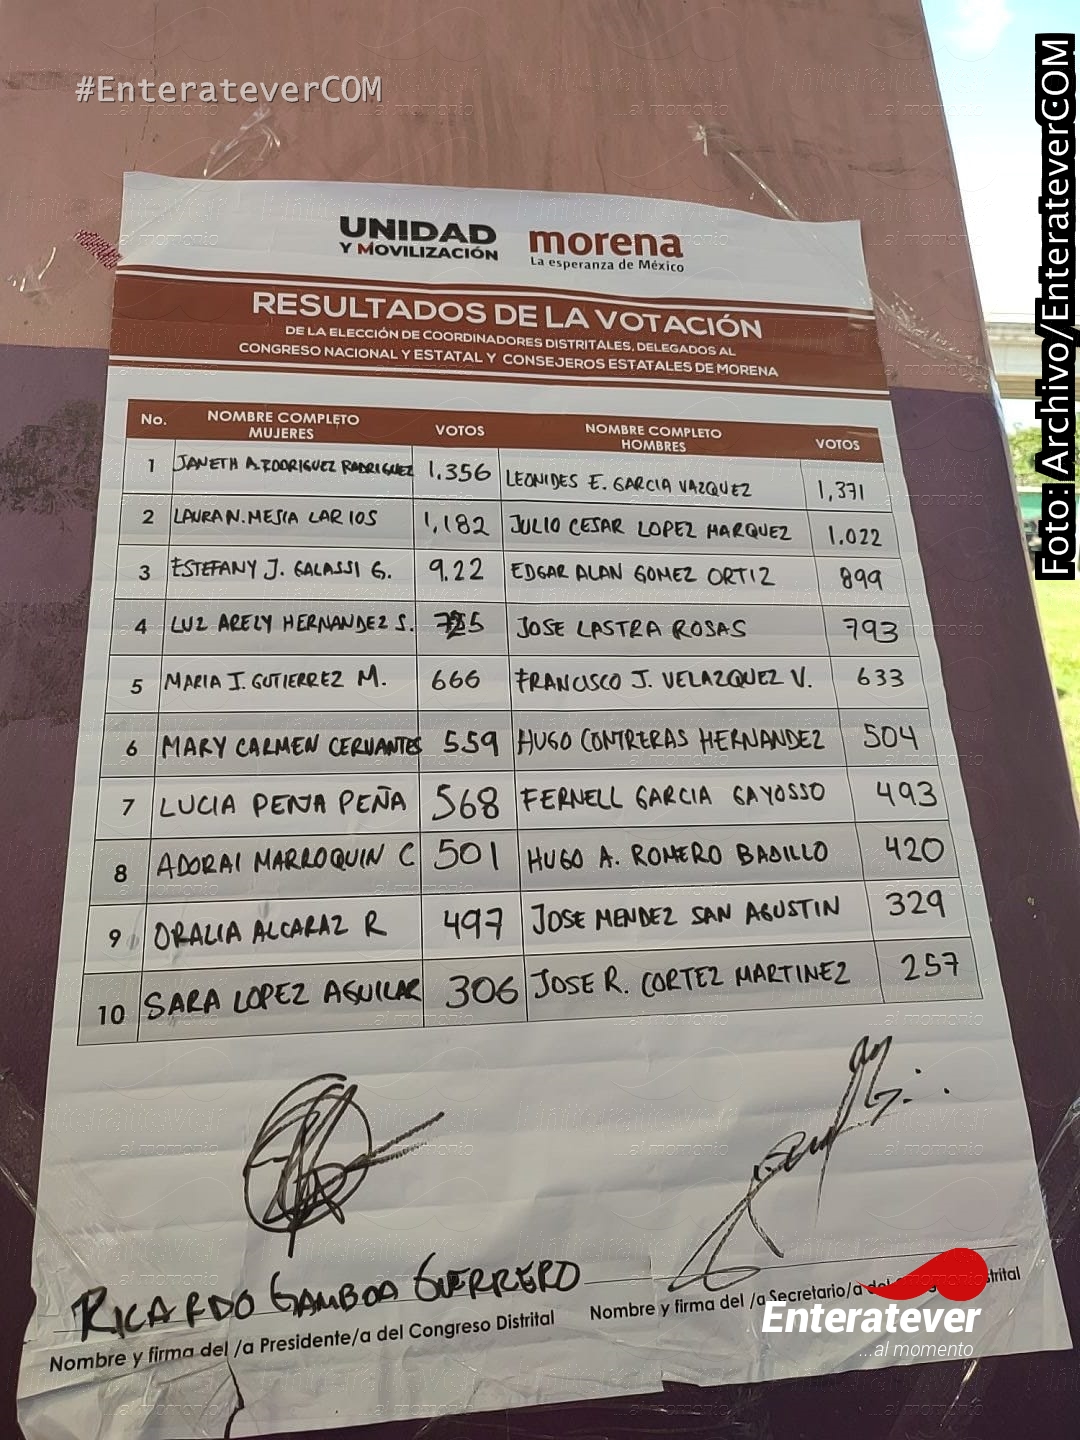 #EnterateverCOM
Foto: Archivo/EnterateverCOM
UNIDAD
Y MOVILIZACIÓN
morena
La esperanza de México
RESULTADOS DE LA VOTACIÓN
DE LA ELECCIÓN DE COORDINADORES DISTRITALES, DELEGADOS AL
CONGRESO NACIONAL Y ESTATAL Y CONSEJEROS ESTATALES DE MORENA
No. NOMBRE COMPLETO MUJERES VOTOS NOMBRE COMPLETO HOMBRES VOTOS
1 JANETH A. RODRIGUEZ RADRIGUEZ 1,356 LEONIDES E. GARCIA VAZQUEZ 1,371
2 LAURA N. MESIA LARIOS 1,182 JULIO CESAR LOPEZ MARQUEZ 1.022
3 ESTEFANY J. GALASSI G. 9.22 EDGAR ALAN GOMEZ ORTIZ 899
4 LUZ ARELY HERNANDEZ S. JOSE LASTRA ROSAS 793
5 MARIA I. GUTIERREZ M. 666 FRANCISCO J. VELAZQUEZ V. 633
6 MARY CARMEN CERVANTES 559 HUGO CONTRERAS HERNANDEZ 504
7 LUCIA PEÑA PEÑA 568 FERNELL GARCIA GAYOSSO 493
8 ADORAI MARROQUIN C 501 HUGO A. ROMERO BADILLO 420
9 ORALIA ALCARAZ R 497 JOSE MENDEZ SAN AGUSTIN 329
10 SARA LOPEZ AGUILAR 306 JOSE R. CORTEZ MARTINEZ 257
RICARDO GAMBOA GUERRERO
Nombre y firma del /a Presidente/a del Congreso Distrital
Nombre y firma del /a Secretario/a del
Enteratever
...al momento